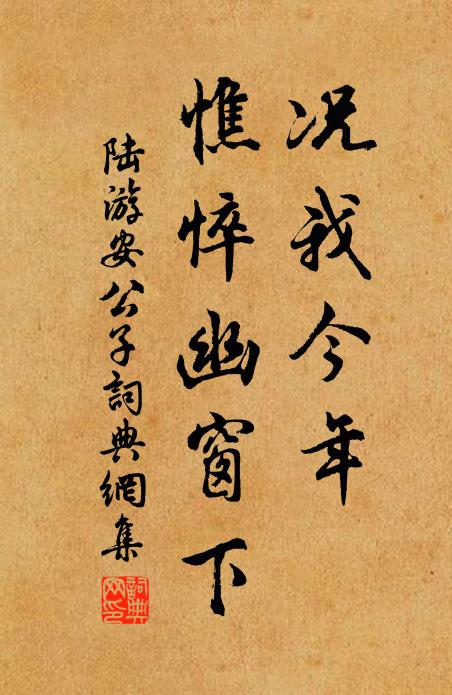 况我今年
憔悴幽窗下
陆游安公子詞典網集
詞典网印